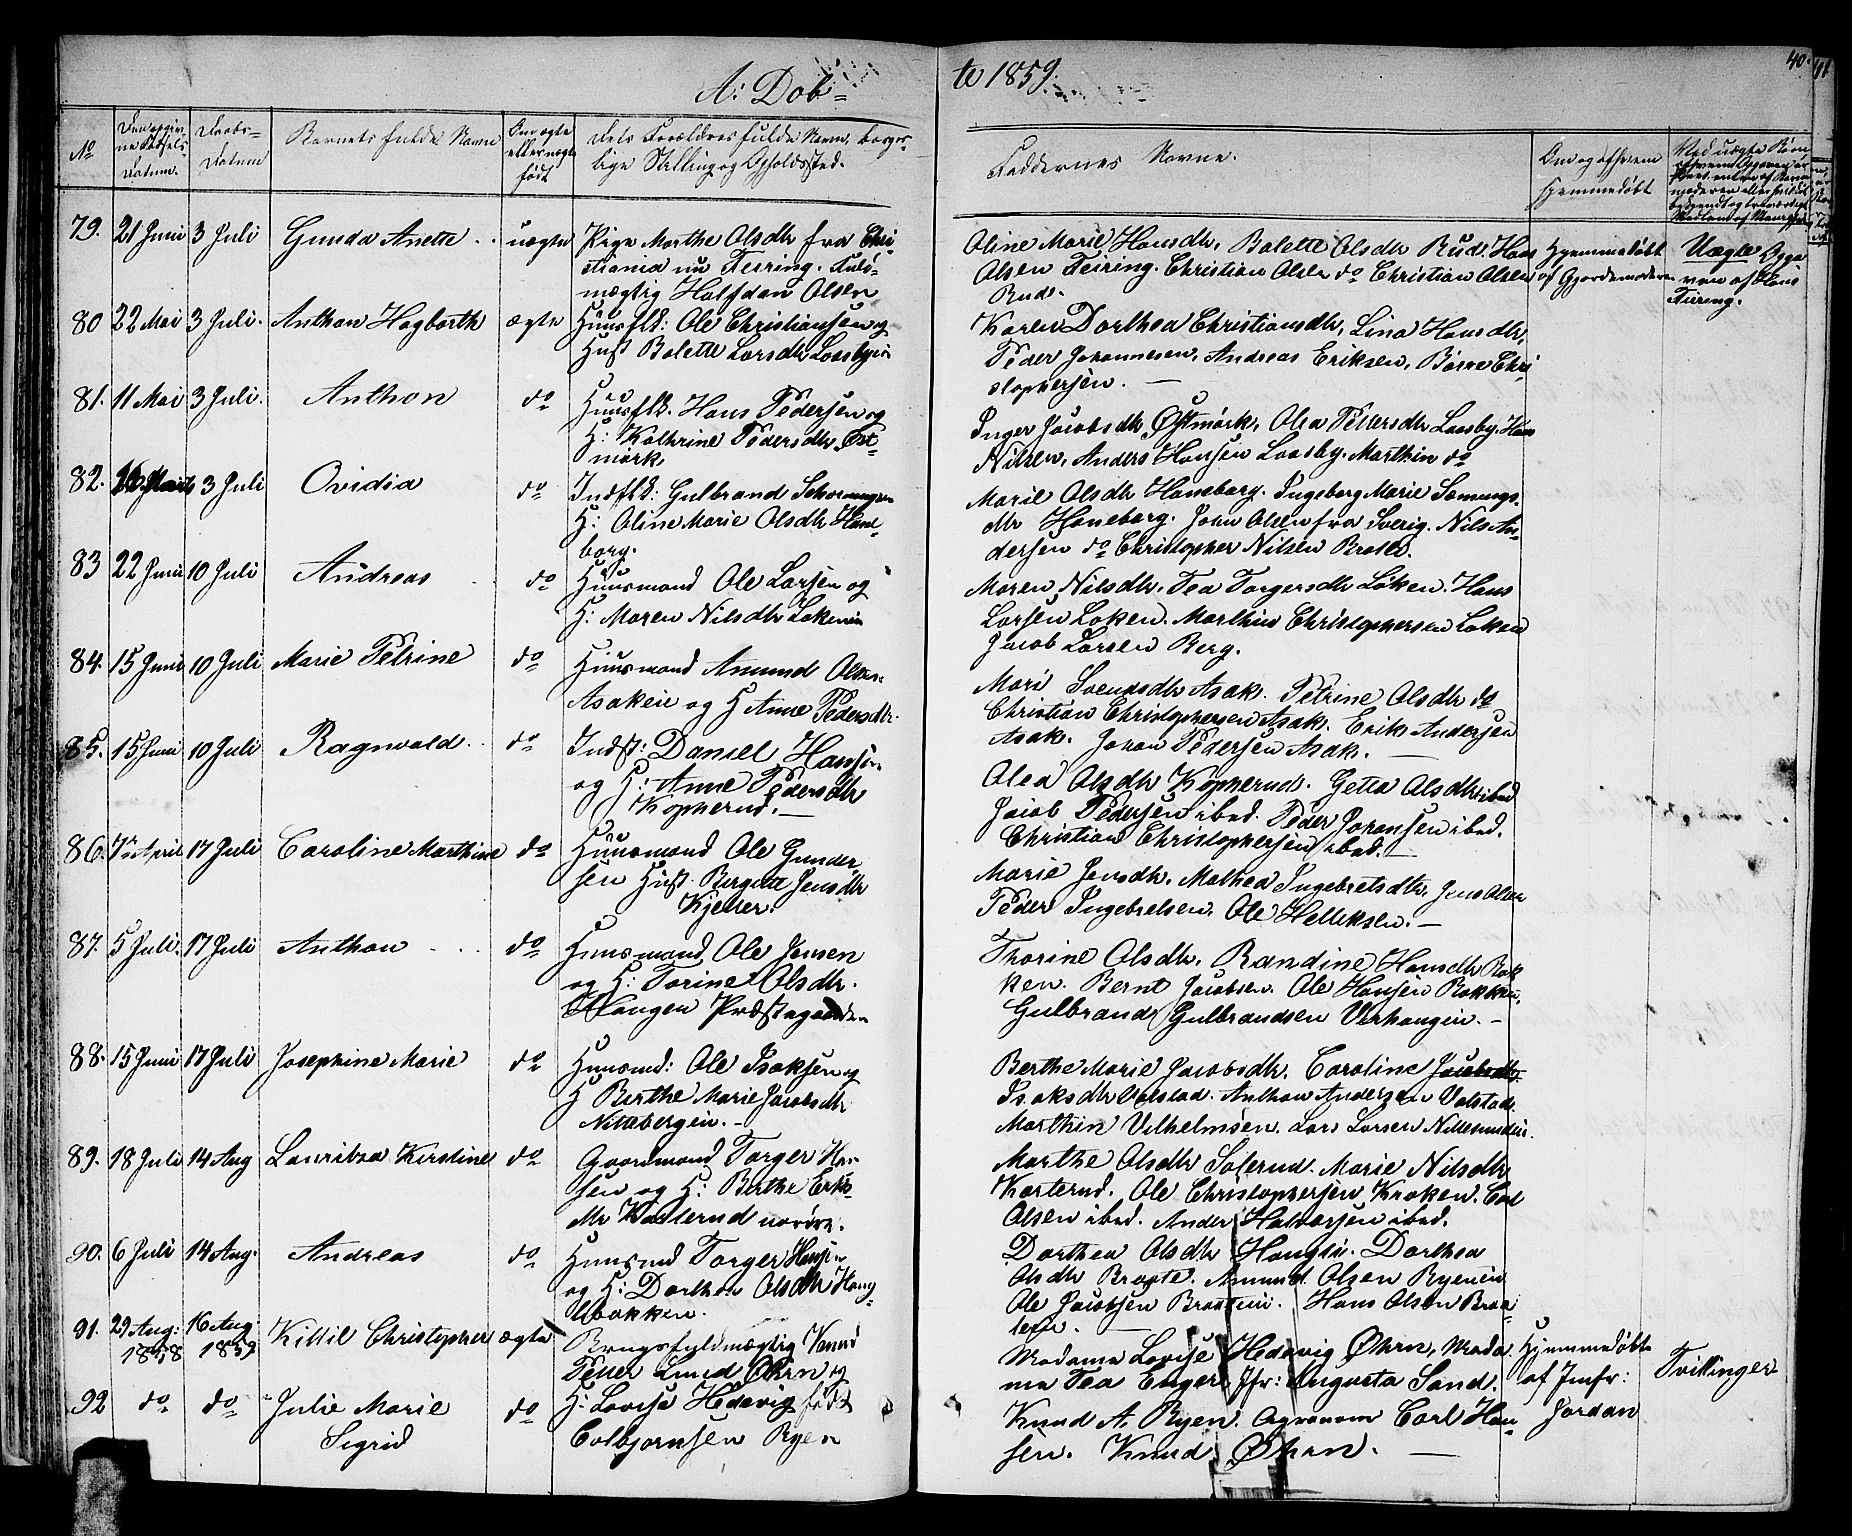 A: Døb=
te 1859.
40.
No
Den opgiv-
ne Fødsels
Datum.
Daabs-
Datum
Barnets fulde Navn
Om ægte
eller uægte
født
Dets Forældres fulde Navn, borger-
lige Stilling og Opholdssted.
Faddernes Navne.
Om og af hvem
hjemmedøbt
Ved uægte Børn
79. 21 Juni 3 Juli Gunda Anette uægte Pige Marthe Olsdtr fra Chri-
stiania nu Feiring. Fuld-
mægtig Halfdan Olsen
Oline Marie Hansdtr, Bolette Olsdtr Rud. Hans
Olsen Feiring. Christian Olsen do Christian Olsen
Rud.
Hjemmedøbt
af Gjordemoderen
Uægte Opga
ven af Hans
Feiring.
80 22 Mai 3 Juli. Anthon Hagbarth ægte Huusflk: Ole Christiansen og
Hust Bolette Larsdtr Loosbyei
Karen Dorthea Christiansdtr, Lina Hansdtr,
Peder Johannesen, Andreas Eriksen, Børre Chri-
stophersen. —
81. 11 Mai 3 Juli. Anthon do Huusflk. Hans Pedersen og
H: Kathrine Pedersdtr Øst-
mørk
Inger Jacobsdtr Østmørk, Olea Pettersdtr Loosby. Hans
Nilsen, Anders Hansen Loosby. Marthin do
82. 3 Juli Ovidia do Indflk: Gulbrand
H: Oline Marie Olsdtr Hane-
borg.
Marie Olsdtr Haneborg. Ingeborg Marie
dtr Haneborg. John Olsen fra Sverig. Nils An-
dersen do Christopher Nilsen Braten.
83 22 Juni 10 Juli Andreas do Huusmand Ole Larsen og
H: Maren Nilsdtr Løkenei
Maren Nilsdtr. Tea Torgersdtr Løken. Hans
Larsen Løken. Marthin Christophersen Løken
Jacob Larsen Berg.
84. 15 Juni 10 Juli Marie Petrine do Huusmand Amund Olsen
Asakeie og H Anne Pedersdtr.
Mari Svendsdtr Asak. Petrine Olsdtr do
Christian Christophersen Asak. Erik Andersen
Asak. Johan Pedersen Asak. —
85. 15 Juni 10 Juli Ragnvald do Indst: Daniel Hansen
og H: Anne Pedersdtr
Kopherud. —
Olea Olsdtr Kopherud. Getta Olsdtr ibid
Jacob Pedersen ibed. Peder Johansen ibed.
Christian Christophersen ibed. —
86. 7de April 17 Juli Caroline Marthine do Huusmand Ole Gunder
sen Hust. Bergitte Jensdtr
Kjeller.
Marie Jensdtr. Mathea Ingebretsdtr, Jens Olsen
Peder Ingebretsen. Ole Helleksen. —
87. 5 Juli. 17 Juli Anthon do Huusmand Ole Jensen
og H: Torine Olsdtr.
Haugen Præstegaarden
Thorine Olsdtr. Randine Hansdtr Rok
ken. Bernt Jacobsen. Ole Hansen Rokken.
Gulbrand Gulbrandsen Verhaugen. —
88. 15 Juni 17 Juli Josephine Marie do Huusmd: Ole Isaksen og
H Berthe Marie Jacobsdtr
Nittebergein. —
Berthe Marie Jacobsdtr. Caroline Jacobsdtr.
Isaksdtr Volstad. Anthon Andersen Volstad.
Marthin Vilhelmsen. Lars Larsen
89. 18 Juli 14 Aug Lauritza Kirstine do Gaardmand Torger Han-
sen og H: Berthe Eriks-
dtr Kasterud nordre.
Marthe Olsdtr Solerud. Marie Nilsdtr
Kasterud. Ole Christophersen Kroken. Carl
Olsen ibed. Anders Halvorsen ibed.
90. 6 Juli 14 Aug. Andreas do Huusmd Torger Hansen
og H: Dorthea Olsdtr Haug-
bakken.
Dorthea Olsdtr Haugen. Dorthea
Olsdtr Braate. Amund Olsen Ryenein
Ole Jacobsen Braatein. Hans Olsen Braa
tein. —
91. 29 Aug: 1858 16 Aug: 1859 Kittil Christopher ægte Brugsfuldmægtig Knud
Peder Lund Øhrn og
Madame Lovise Hedevig Øhrn, Mada
me Tea Enger. Jfr: Augusta Sand.
Hjemmedøbt
af Jmfr:
Jordan
Tvillinger
92 do do Julie Marie
Sigrid
do H: Lovise Hedevig født
Colbjørnsen Ryen
Knud A. Ryen. Agronom Carl Han-
sen. Knud Øhrn. —